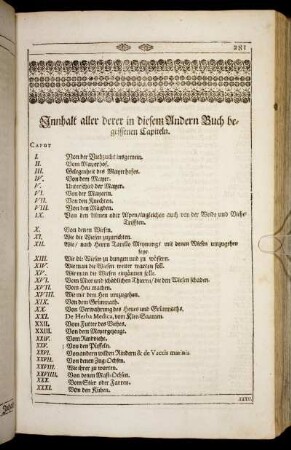 281
Innhalt aller derer in diesem Andern Buch be-
griffenen Capiteln.
CAPUT
I. Von der Viehzucht insgemein.
II. Vom Mayerhof.
III. Gelegenheit des Mayerhofes.
IV. Von dem Mayer.
V. Unterscheid der Mayer.
VI. Von der Mayerin.
VII. Von den Knechten.
VIII. Von den Mägden.
IX. Von den Almen oder Alpen/ingleichen auch von der Weide und Viehe-
Trifften.
X. Von denen Wiesen.
XI. Wie die Wiesen zuzurichten.
XII. Wie/ nach Herrn Tarello Meynung/ mit denen Wiesen umzugehen
seye.
XIII. Wie die Wiesen zu dungen und zu wässern.
XIV. Wie man die Wiesen weiter warten soll.
XV. Wie man die Wiesen
XVI. Von Moos und schädlichen Thieren/ die den Wiesen schaden.
XVII. Vom Heu machen.
XVIII. Wie mit dem Heu umzugehen.
XIX. Von dem Gesträuch.
XX. Von Verwahrung des Heues und
XXI. De Herba Medica, vom Klee-Saamen.
XXII. Vom Futter des Viehes.
XXIII. Von dem Mayergezeugt.
XXIV. Vom Rindviehe.
XXV. Von den Püffeln.
XXVI. Von andern wilden Rindern & de Vaccis marinis.
XXVII. Von denen Zug-Ochsen.
XXVIII. Wie ihrer zu warten.
XXVIIII. Von denen Mast-Ochsen.
XXX. Vom Stier oder Farren.
XXXI. Von den Kühen.
XXXII.